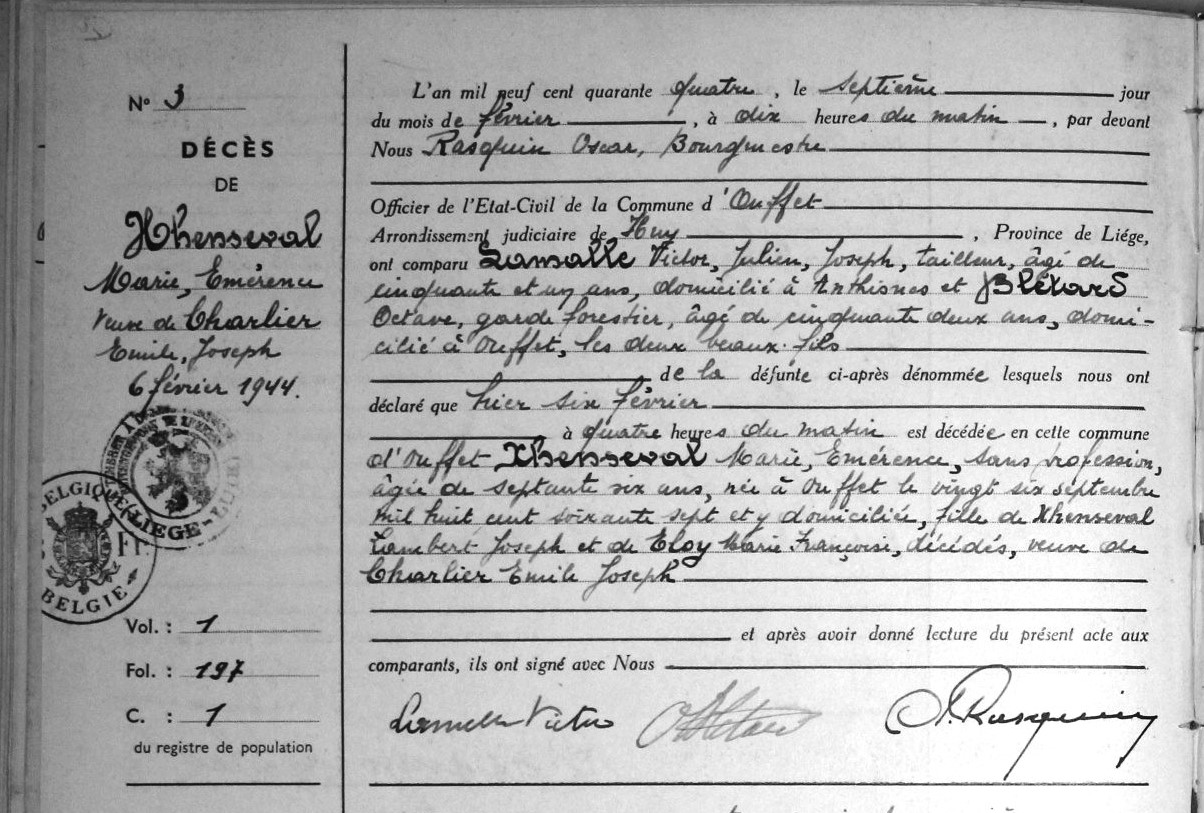 N° 3
DÉCÈS
DE
Xhenseval
Marie, Emérence
Veuve de Charlier
Emile, Joseph
6 février 1944.
LIEGE - LUIK
BELGIQUE
BELGIE
Vol. : 1
Fol. : 197
C. : 1
du registre de population
L'an mil neuf cent quarante quatre, le septième jour
du mois de février, à dix heures du matin, par devant
Nous Rasquin Oscar, Bourgmestre
Officier de l'Etat-Civil de la Commune d'Ouffet
Arrondissement judiciaire de Huy, Province de Liége,
ont comparu Lamalle Victor, Julien, Joseph, tailleur, âgé de
cinquante et un ans, domicilié à Anthisnes et Blétard
Octave, garde forestier, âgé de cinquante deux ans, domi-
cilié à Ouffet, les deux beaux-fils
de la défunte ci-après dénommée lesquels nous ont
déclaré que hier six février
à quatre heures du matin est décédée en cette commune
d'Ouffet Xhenseval Marie, Emérence, sans profession,
âgée de septante six ans, née à Ouffet le vingt six septembre
mil huit cent soixante sept et y domiciliée, fille de Xhenseval
Lambert Joseph et de Eloy Marie Françoise, décédés, veuve de
Charlier Emile Joseph
et après avoir donné lecture du présent acte aux
comparants, ils ont signé avec Nous
Lamalle Victor O Blétard O. Rasquin